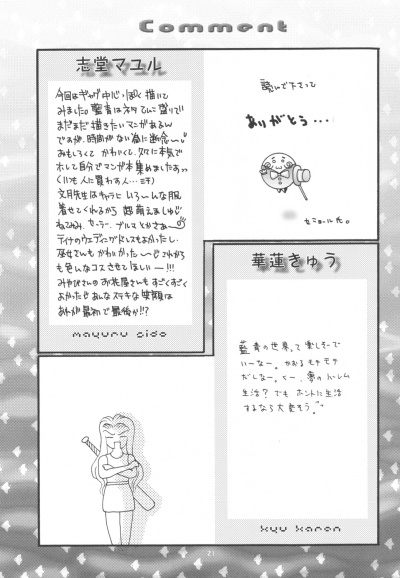 Comment
志堂マユル
今回はギャグ中心っぽく描いて
みました。藍青はネタてんこ盛りで!!
まだまだ描きたいマンガあるん
ですが、時間がない為に断念〜
おもしろくて かわいくて、
ホレして自分でマンガ本集めましたあっ
(いつも人に買わす人…ミチ)
文月先生はキャラに いろ〜んな服
着せてくれるから 超萌えましゅ
ねこみみ、セーラー、ブルマとかさあ〜
ティナのウェディングドレスもよかったし、
巫女さんもかわいかった〜 これから
も色んなコスさせてほしい〜!!!
みやびさんのお花屋さんもすごくすごく
よかった あんなステキな笑顔は
あれが最初で最後か!?
mayuru sido
読んで下さって
ありがとう・・・
セミョール氏。
華蓮きゅう
藍青の世界って楽しそーで
いーなー。かおるモテモテ
だしなー。くー、夢のハーレム
生活?でも ホントに生活
するなら大変そう。
kyu karen
21